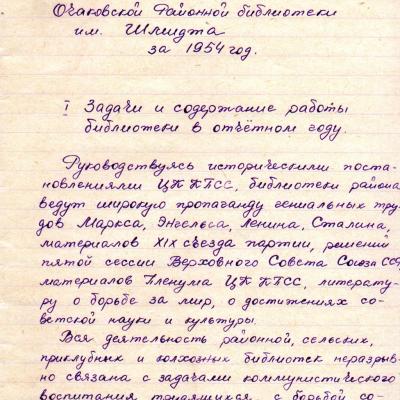 Очаковской Районной библиотеки
им. Шмидта
за 1954 год.
I Задачи и содержание работы
библиотеки в отчётном году.
Руководствуясь историческими поста-
новлениями ЦК КПСС, библиотеки района
ведут широкую пропаганду гениальных тру-
дов Маркса, Энгельса, Ленина, Сталина,
материалов XIX съезда партии, решений
пятой сессии Верховного Совета Союза ССР,
материалов Пленума ЦК КПСС, литерату-
ру о борьбе за мир, о достижениях со-
ветской науки и культуры.
Вся деятельность районной, сельских,
приклубных и колхозных библиотек неразрыв-
но связана с задачами коммунистического
воспитания трудящихся, с борьбой со-